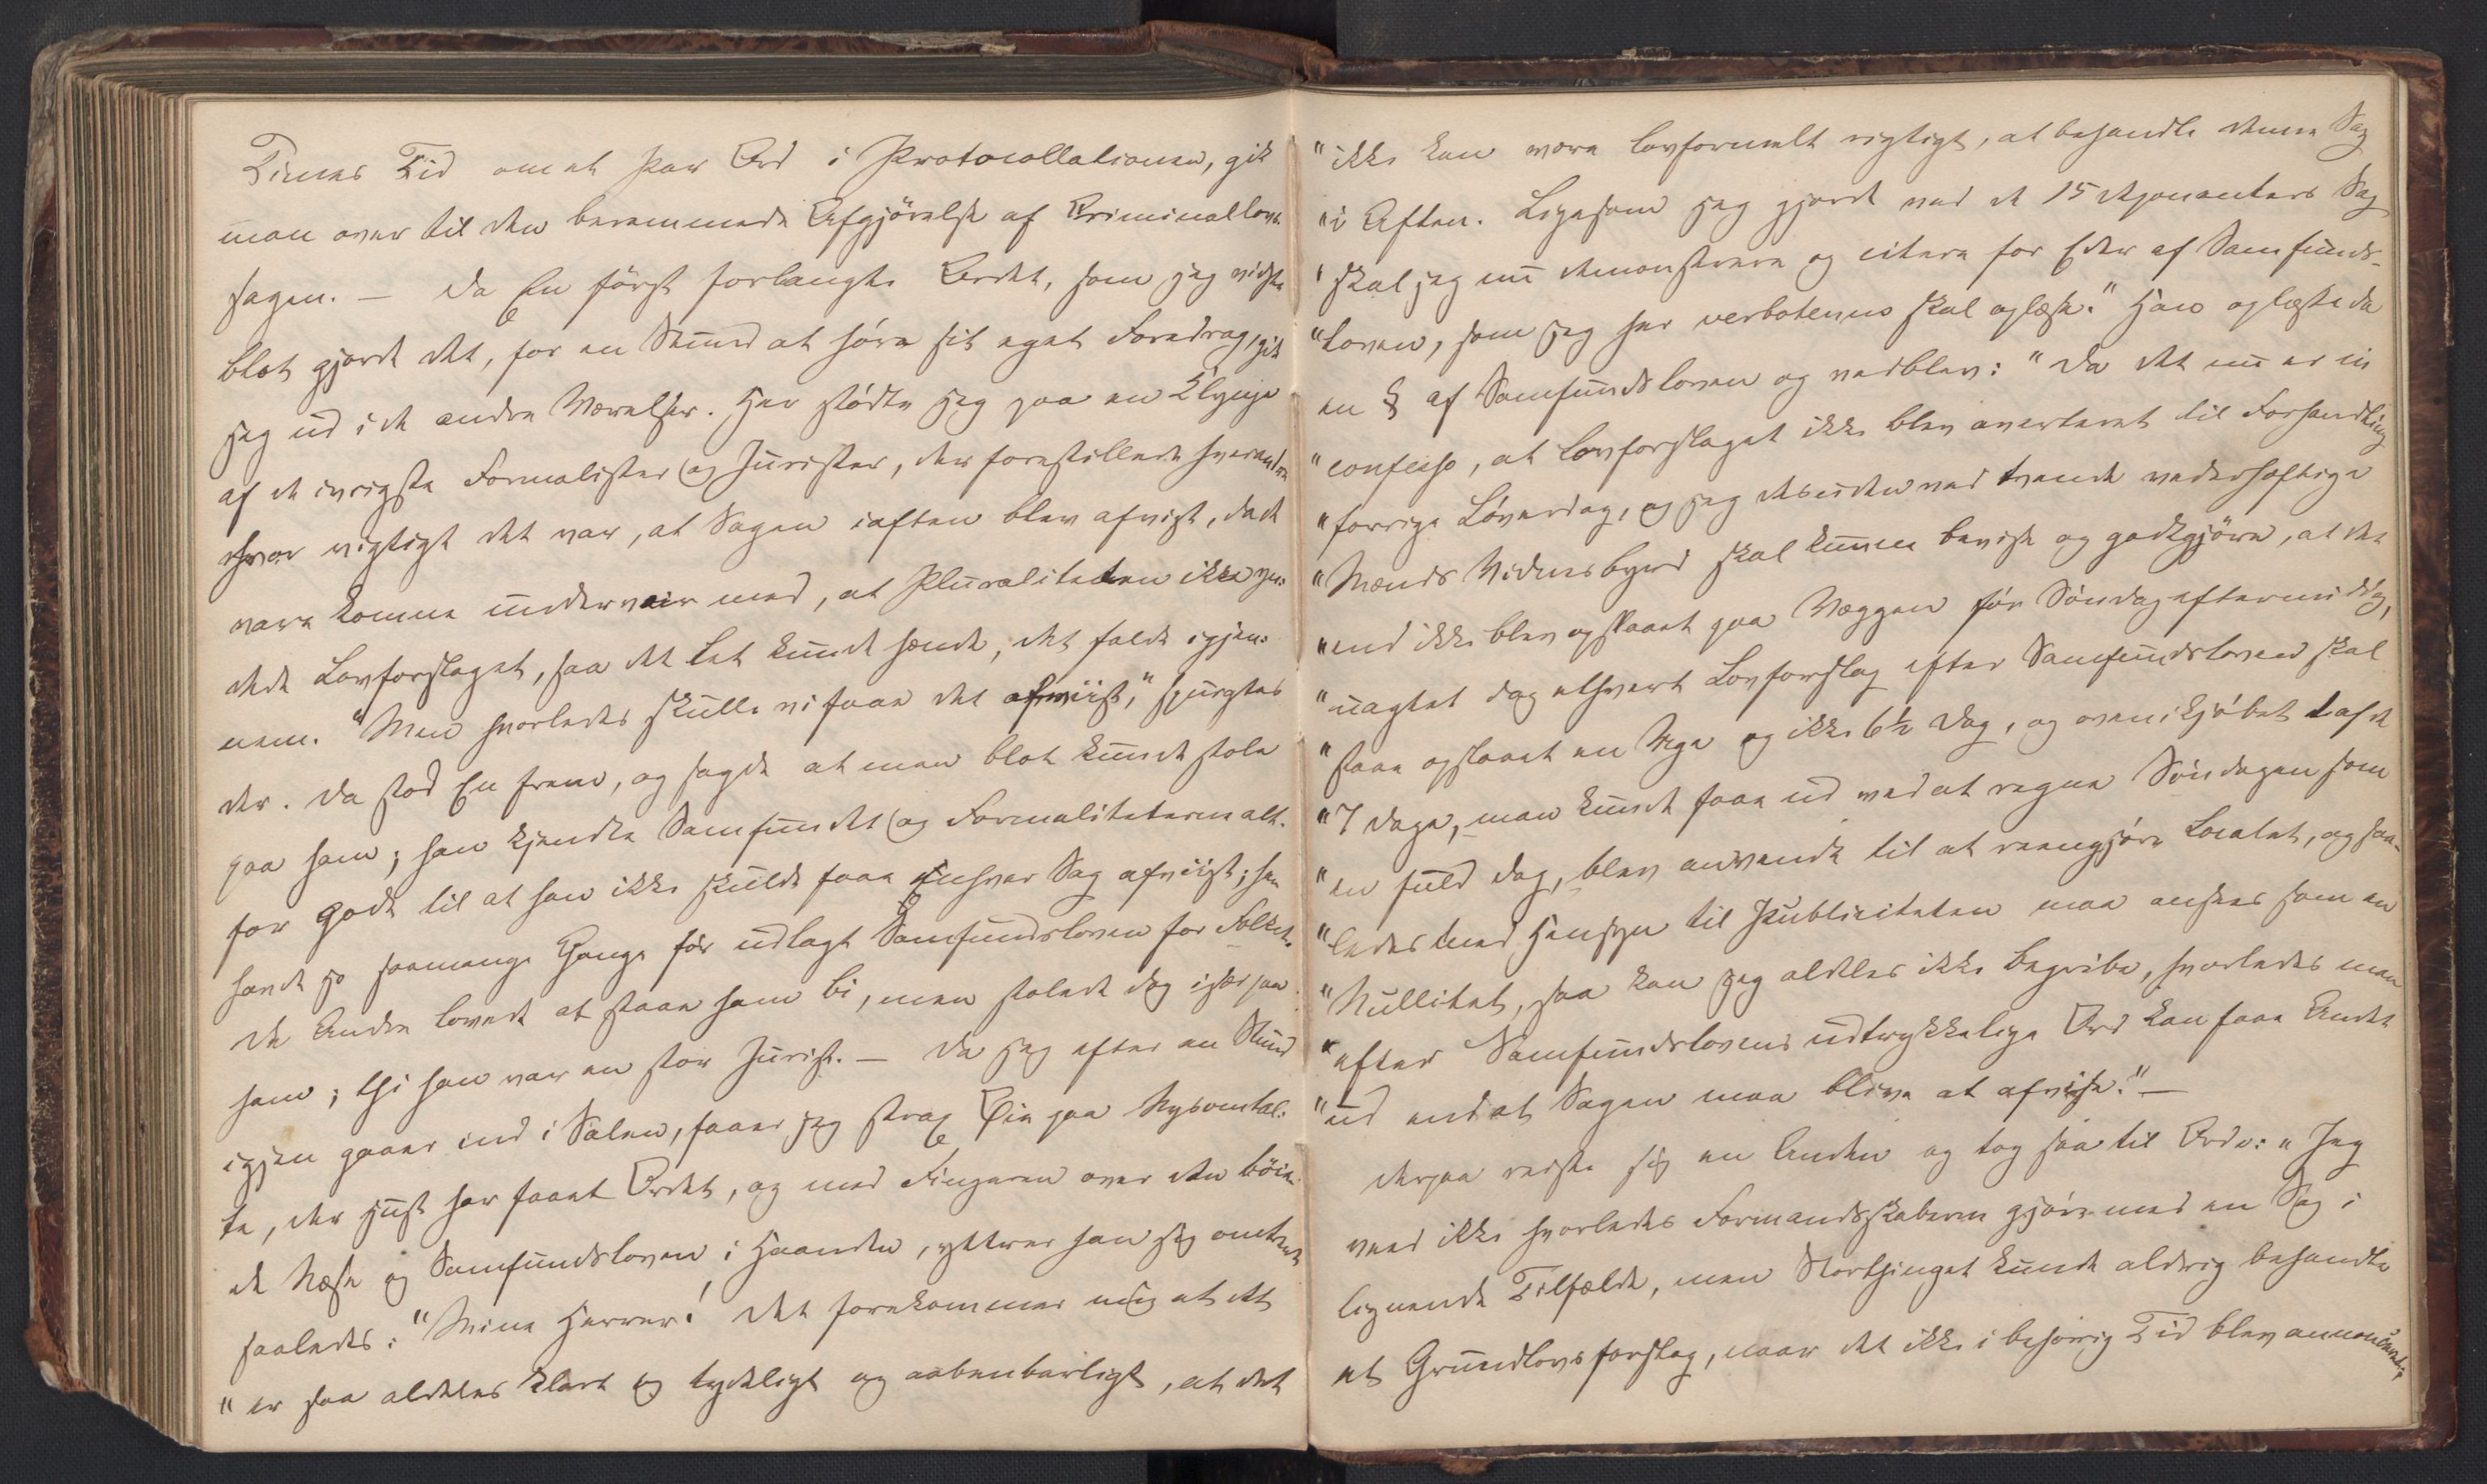 Times Tid om et Par Ord i Protocollationen, gik
man over til den berammede Afgjörelse af Criminallovs-
sagen. — Da En först forlangte Ordet, som jeg vidste
blot gjorde det, for en Stund at höre sit eget Foredrag, gik
jeg ud i de andre Værelser. Her stödte jeg paa en Klynge
af de ivrigste Formalister og Jurister, der forestillede hverandre
hvor vigtigt det var, at Sagen iaften blev afvist, da de
vare komne underveir med, at Pluraliteten ikke yn-
dede Lovforslaget, saa det let kunde hænde, det faldt igjen-
nem. "Men hvorledes skulle vi faae det afviist," spurgtes
der. Da stod En frem, og sagde at man blot kunde stole
paa ham; han kjendte Samfundet og Formaliteterne alt-
for godt til at han ikke skulde faae enhver Sag afviist; han
havde jo saamange Gange för udlagt Samfundsloven for Folket.
De Andre lovede at staae ham bi, men stolede dog især paa
ham; thi han var en stor Jurist. — Da jeg efter en Stund
igjen gaaer ind i Salen, faaer jeg strax Öie paa Nysomtal-
te, der just har faaet Ordet, og med Fingeren over den böie-
de Næse og Samfundsloven i Haanden, yttrer han sig omtrent
saaledes: "Mine Herrer! Det forekommer mig at det
" er saa aldeles klart og tydeligt og aabenbarligt, at det
" ikke kan være lovformelt rigtigt, at behandle denne Sag
" i Aften. Ligesom jeg gjorde ved de 15 Deponenters Sag
" skal jeg nu demonstrere og citere for Eder af Samfunds-
" loven, som jeg her verbotenus skal oplæse." Han oplæste da
en § af Samfundsloven og vedblev: "Da det nu er in
" confesso, at Lovforslaget ikke blev averteret til Forhandling
" forrige Löverdag, og jeg desuden ved tvende vederhæftige
" Mænds Vidnesbyrd skal kunne bevise og godtgjöre, at det
" end ikke blev opslaaet paa Væggen för Söndag eftermiddag,
" uagtet dog ethvert Lovforslag efter Samfundsloven skal
" staae opslaaet en Uge og ikke 6½ Dag, og ovenikjöbet af de
" 7 Dage, man kunde faae ud ved at regne Söndagen som
" en fuld Dag, blev anvendt til at reengjöre Localet, og saa-
" ledes med Hensyn til Publiciteten maa ansees som en
" Nullitet, saa kan jeg aldeles ikke begribe, hvorledes man
" efter Samfundslovens udtrykkelige Ord kan faae Andet
" ud end at Sagen maa blive at afvise." —
Derpaa reiste sig en Anden og tog saa til Orde: "Jeg
veed ikke hvorledes Formandskaberne gjöre med en Sag i
lignende Tilfælde, men Storthinget kunde aldrig behandle
et Grundlovsforslag, naar det ikke i behörig Tid blev annonceret,